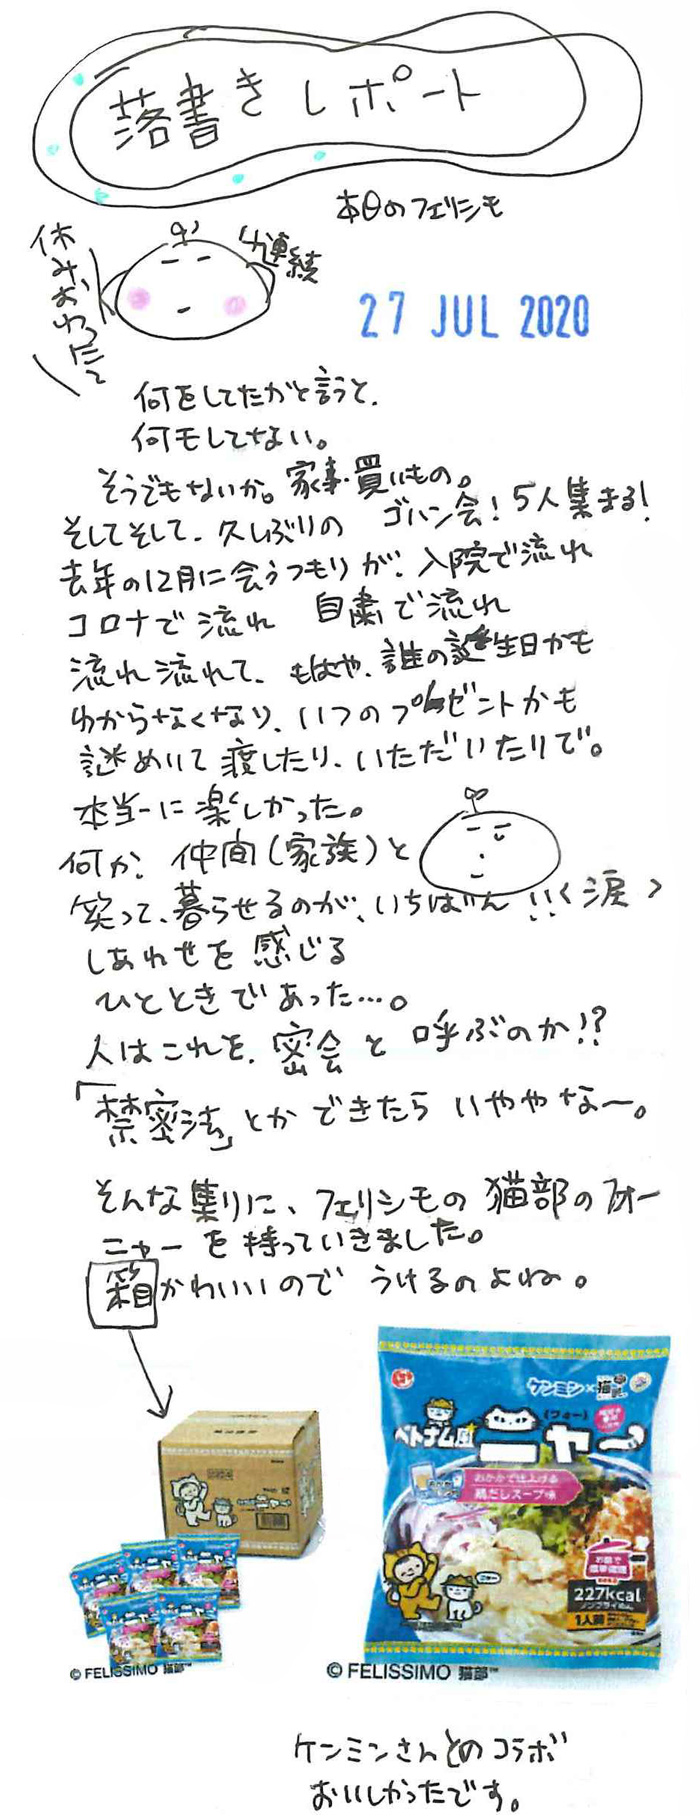 落書きレポート
本日のフェリシモ
休みおわったて
連続
27 JUL 2020
何をしてたかと言うと、
何もしてない。
そうでもないか。家事・買いもの。
そしてそして、久しぶりの ゴハン会！5人集まる！
去年の12月に会うつもりが、入院で流れ
コロナで流れ 自粛で流れ
流れ流れて、もはや、誰の誕生日かも
わからなくなり、いつのプレゼントかも
謎めいて渡したり、いただいたりで。
本当に楽しかった。
何か、仲間（家族）と
笑って、暮らせるのが、いちばん!!＜涙＞
しあわせを感じる
ひとときであった…。
人はこれを、密会と呼ぶのか!?
「禁密法」とかできたらいややなー。
そんな集りに、フェリシモの猫部のフォー
ニャーを持っていきました。
箱かわいいのでうけるのよね。
ケンミン×猫部
ベトナム風
(フォー)
ニャー
おかかで仕上げる
鶏だしスープ味
お鍋で
簡単調理
227kcal
ノンフライめん
1人前
© FELISSIMO 猫部™
© FELISSIMO 猫部™
ケンミンさんとのコラボ
おいしかったです。